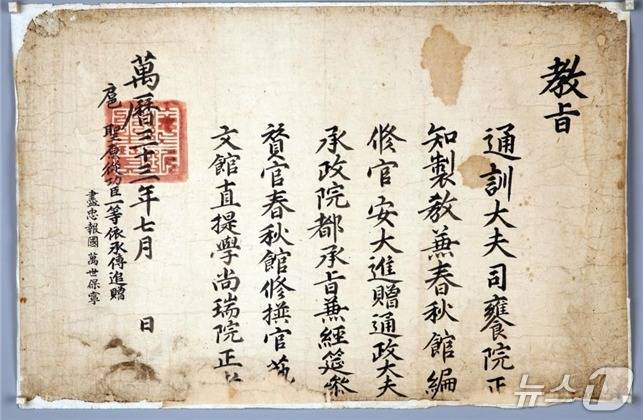 教旨
通訓大夫司饔院正
知製教兼春秋館編
修官安大進贈通政大夫
承政院都承旨兼經筵參
贊官春秋館修撰官藝
文館直提學尚瑞院正
萬曆三十三年七月 日
扈聖原從功臣一等依承傳追贈
盡忠報國 萬世保寧
뉴스1